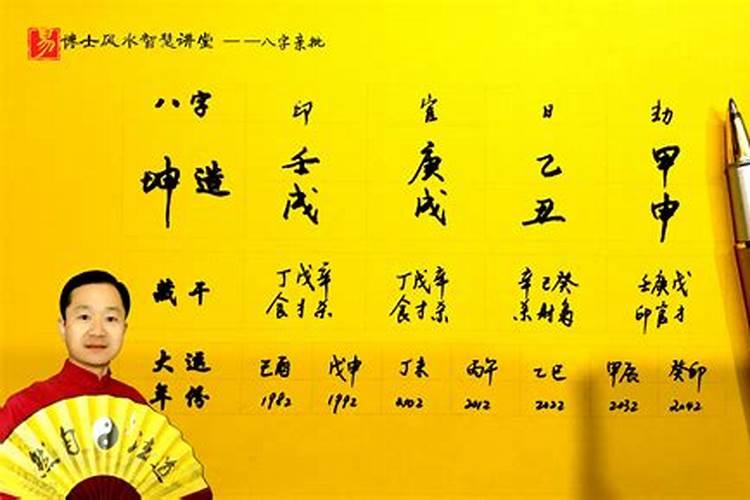 易 博士风水智慧讲堂 ——八字亲批
八字 印 官 日 劫
坤造 壬戌 庚戌 乙丑 甲申
藏干 丁戊辛 丁戊辛 辛己癸 壬庚戊
食才杀 食才杀 杀财枭 印官才
大运 己酉 戊申 丁未 丙午 乙巳 甲辰 癸卯
年份 1982 1992 2002 2012 2022 2032 2042
然自法道